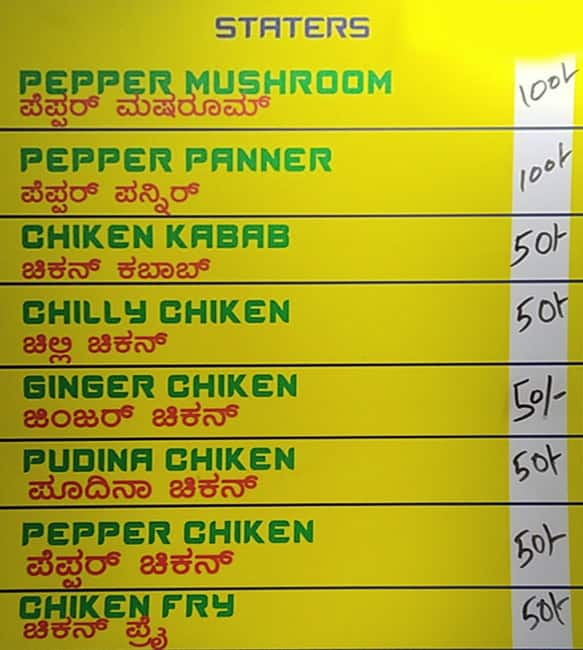 STATERS
PEPPER MUSHROOM 100/-
ಪೆಪ್ಪರ್ ಮಷರೂಮ್
PEPPER PANNER 100/-
ಪೆಪ್ಪರ್ ಪನ್ನಿರ್
CHIKEN KABAB 50/-
ಚಿಕನ್ ಕಬಾಬ್
CHILLY CHIKEN 50/-
ಚಿಲ್ಲಿ ಚಿಕನ್
GINGER CHIKEN 50/-
ಜಿಂಜರ್ ಚಿಕನ್
PUDINA CHIKEN 50/-
ಪೂದಿನಾ ಚಿಕನ್
PEPPER CHIKEN 50/-
ಪೆಪ್ಪರ್ ಚಿಕನ್
CHIKEN FRY 50/-
ಚಿಕನ್ ಪ್ರೈ